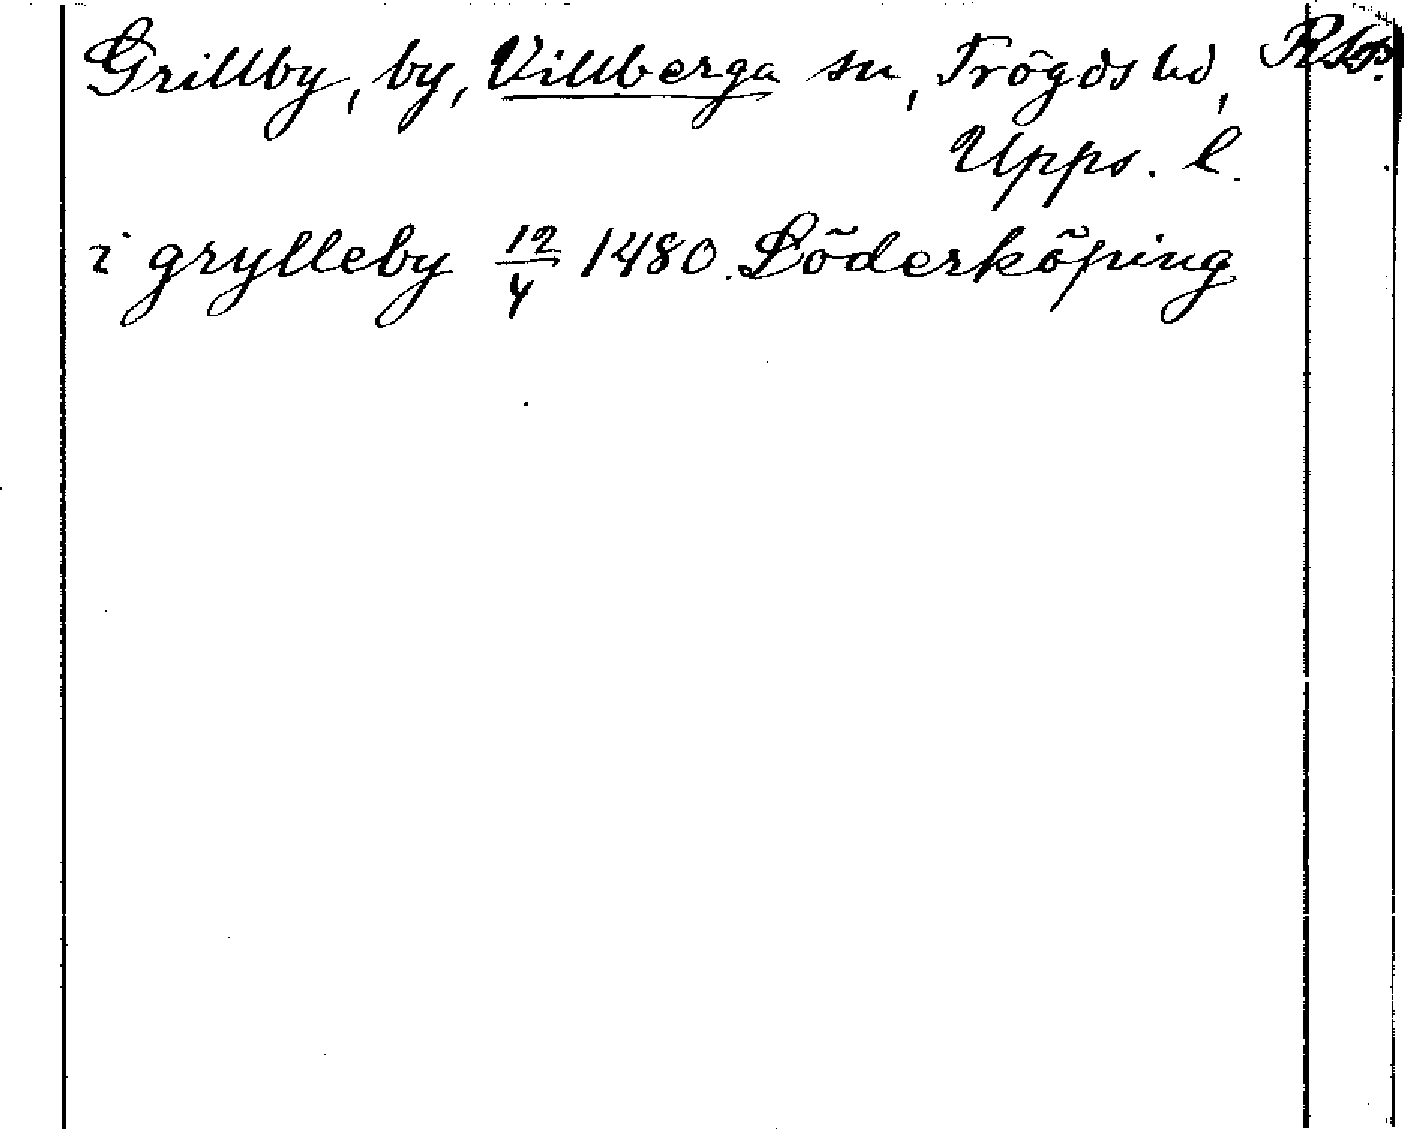 Grillby, by, Villberga sn, Trögds hd, RAp.
Upps. l.
i grylleby 12/4 1480. Söderköping